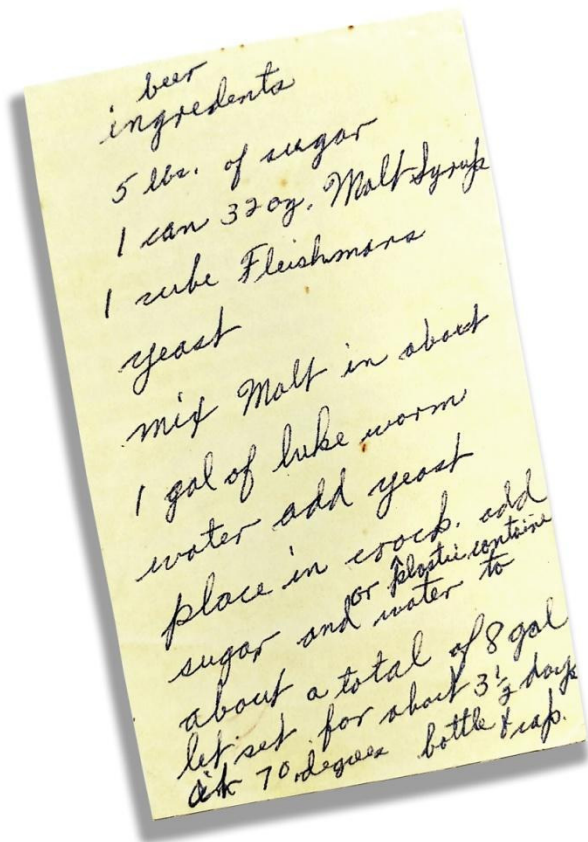 beer
ingredents
5 lbs. of sugar
1 can 32 oz. Malt Syrup
1 cube Fleishmans
yeast
mix Malt in about
1 gal of luke worm
water add yeast
place in crock. add
or plastic containe
sugar and water to
about a total of 8 gal
let set for about 3½ days
at 70 degrees bottle & cap.